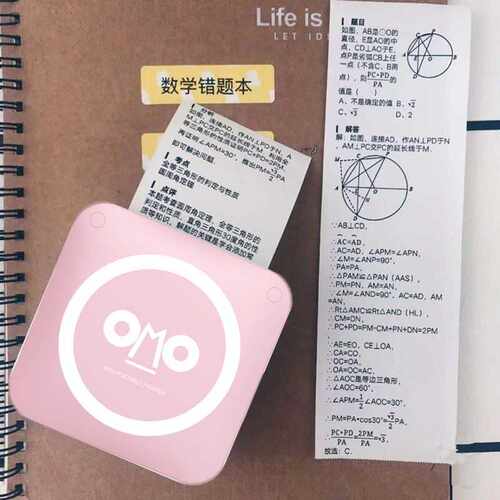 Life is
LET IDE
数学错题本
分析
如图，连接AD，作AN⊥PD于N，A
M⊥PC交PC的延长线于M，利用全
等三角形的性质证明PC+PD=2PM，
再证明∠APM=30°，推出PM=√3/2PA
即可解决问题．
考点
全等三角形的判定与性质
圆周角定理
点评
本题考查圆周角定理、全等三角形的
判定和性质、直角三角形30度角的性
质等知识，解题的关键是学会添加常
OMO
题目
如图，AB是○O的
直径，E是AO的中
点，CD⊥AO于E，
点P是劣弧CB上任
一点（不含C、B两
点），则(PC+PD)/PA的
值是（ ）
A、不是确定的值 B、√2
C、√3 D、2
解答
解：如图，连接AD，作AN⊥PD于
N，AM⊥PC交PC的延长线于M．
∵AB⊥CD，
∴AC=AD，
∴AC=AD，∠APM=∠APN，
∵∠M=∠ANP=90°，
∵PA=PA，
∴△PAM≌△PAN（AAS），
∴PM=PN，AM=AN，
∵∠M=∠AND=90°，AC=AD，AM
=AN，
∴Rt△AMC≌Rt△AND（HL），
∴CM=DN，
∴PC+PD=PM-CM+PN+DN=2PM
∵AE=EO，CE⊥OA，
∴CA=CO，
∵OC=OA，
∴OA=OC=AC，
∴△AOC是等边三角形，
∴∠AOC=60°，
∴∠APM=1/2∠AOC=30°，
∴PM=PA•cos30°=√3/2PA，
∴(PC+PD)/PA=2PM/PA=√3．
故选：C．